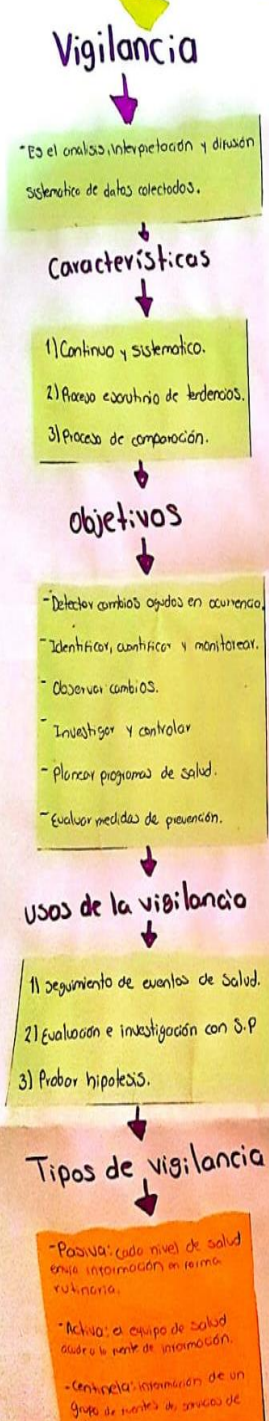 Vigilancia
-Es el analisis, interpretación y difusión
sistematico de datos colectados.
Características
1) Continuo y sistematico.
2) Proceso escrutinio de tendencias.
3) Proceso de comparación.
Objetivos
-Detectar cambios agudos en ocurrencia.
-Identificar, cuantificar y monitorear.
-Observar cambios.
-Investigar y controlar
-Planear programas de salud.
-Evaluar medidas de prevención.
usos de la vigilancia
1) seguimiento de eventos de salud.
2) Evaluación e investigación con S.P
3) Probar hipotesis.
Tipos de vigilancia
-Pasiva: cada nivel de salud
envía información en forma
rutinaria.
-Activa: el equipo de salud
acude a la fuente de información.
-Centinela: información de un
grupo de fuentes de servicios de